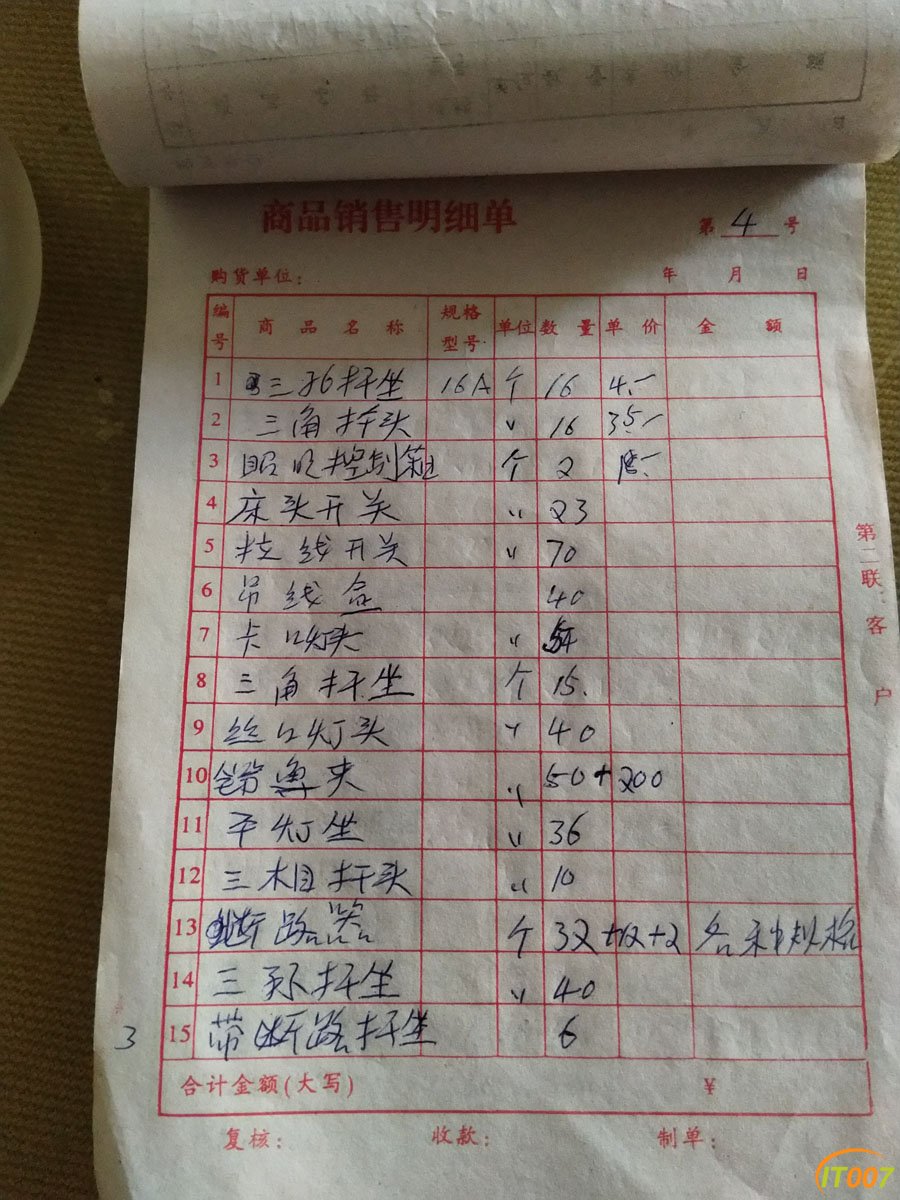 商品销售明细单
第 4 号
购货单位: 年 月 日
编号 商品名称 规格型号 单位 数量 单价 金额
1 三孔扦坐 16A 个 16 4.-
2 三角扦头 〃 16 35.-
3 照明控制箱 个 2
4 床头开关 〃 23
5 拉线开关 〃 70
6 吊线盒 40
7 卡口灯头 〃
8 三角扦坐 个 15.
9 丝口灯头 〃 40
10 鱼夹 〃 50+200
11 平灯坐 〃 36
12 三相扦头 〃 10
13 断路器 个 32+12+2 各种规格
14 三孔扦坐 〃 40
3 15 带断路扦坐 6
合计金额(大写) ¥
复核: 收款: 制单:
第二联:客户
IT007